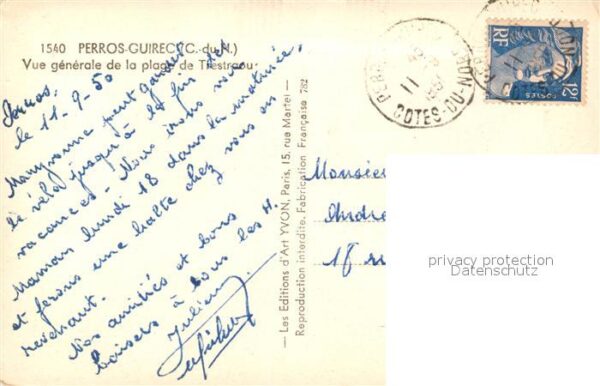 1540 PERROS-GUIREC (C.-du-N.)
Vue générale de la plage de Trestraou
le 11-9-50
Maryvonne peut garder
le vélo jusqu'à la fin des
vacances - Nous irons voir
Maman lundi 18 dans la matinée
et ferons une halte chez vous en
revenant.
Nos amitiés et bons
baisers à tous les 4.
Julien
— Les Editions d'Art YVON, Paris, 15, rue Martel —
Reproduction interdite. Fabrication Française 782
PERROS
COTES-DU-NORD
11
RF
2F
POSTES
Monsieur
André
18 ru
privacy protection
Datenschutz